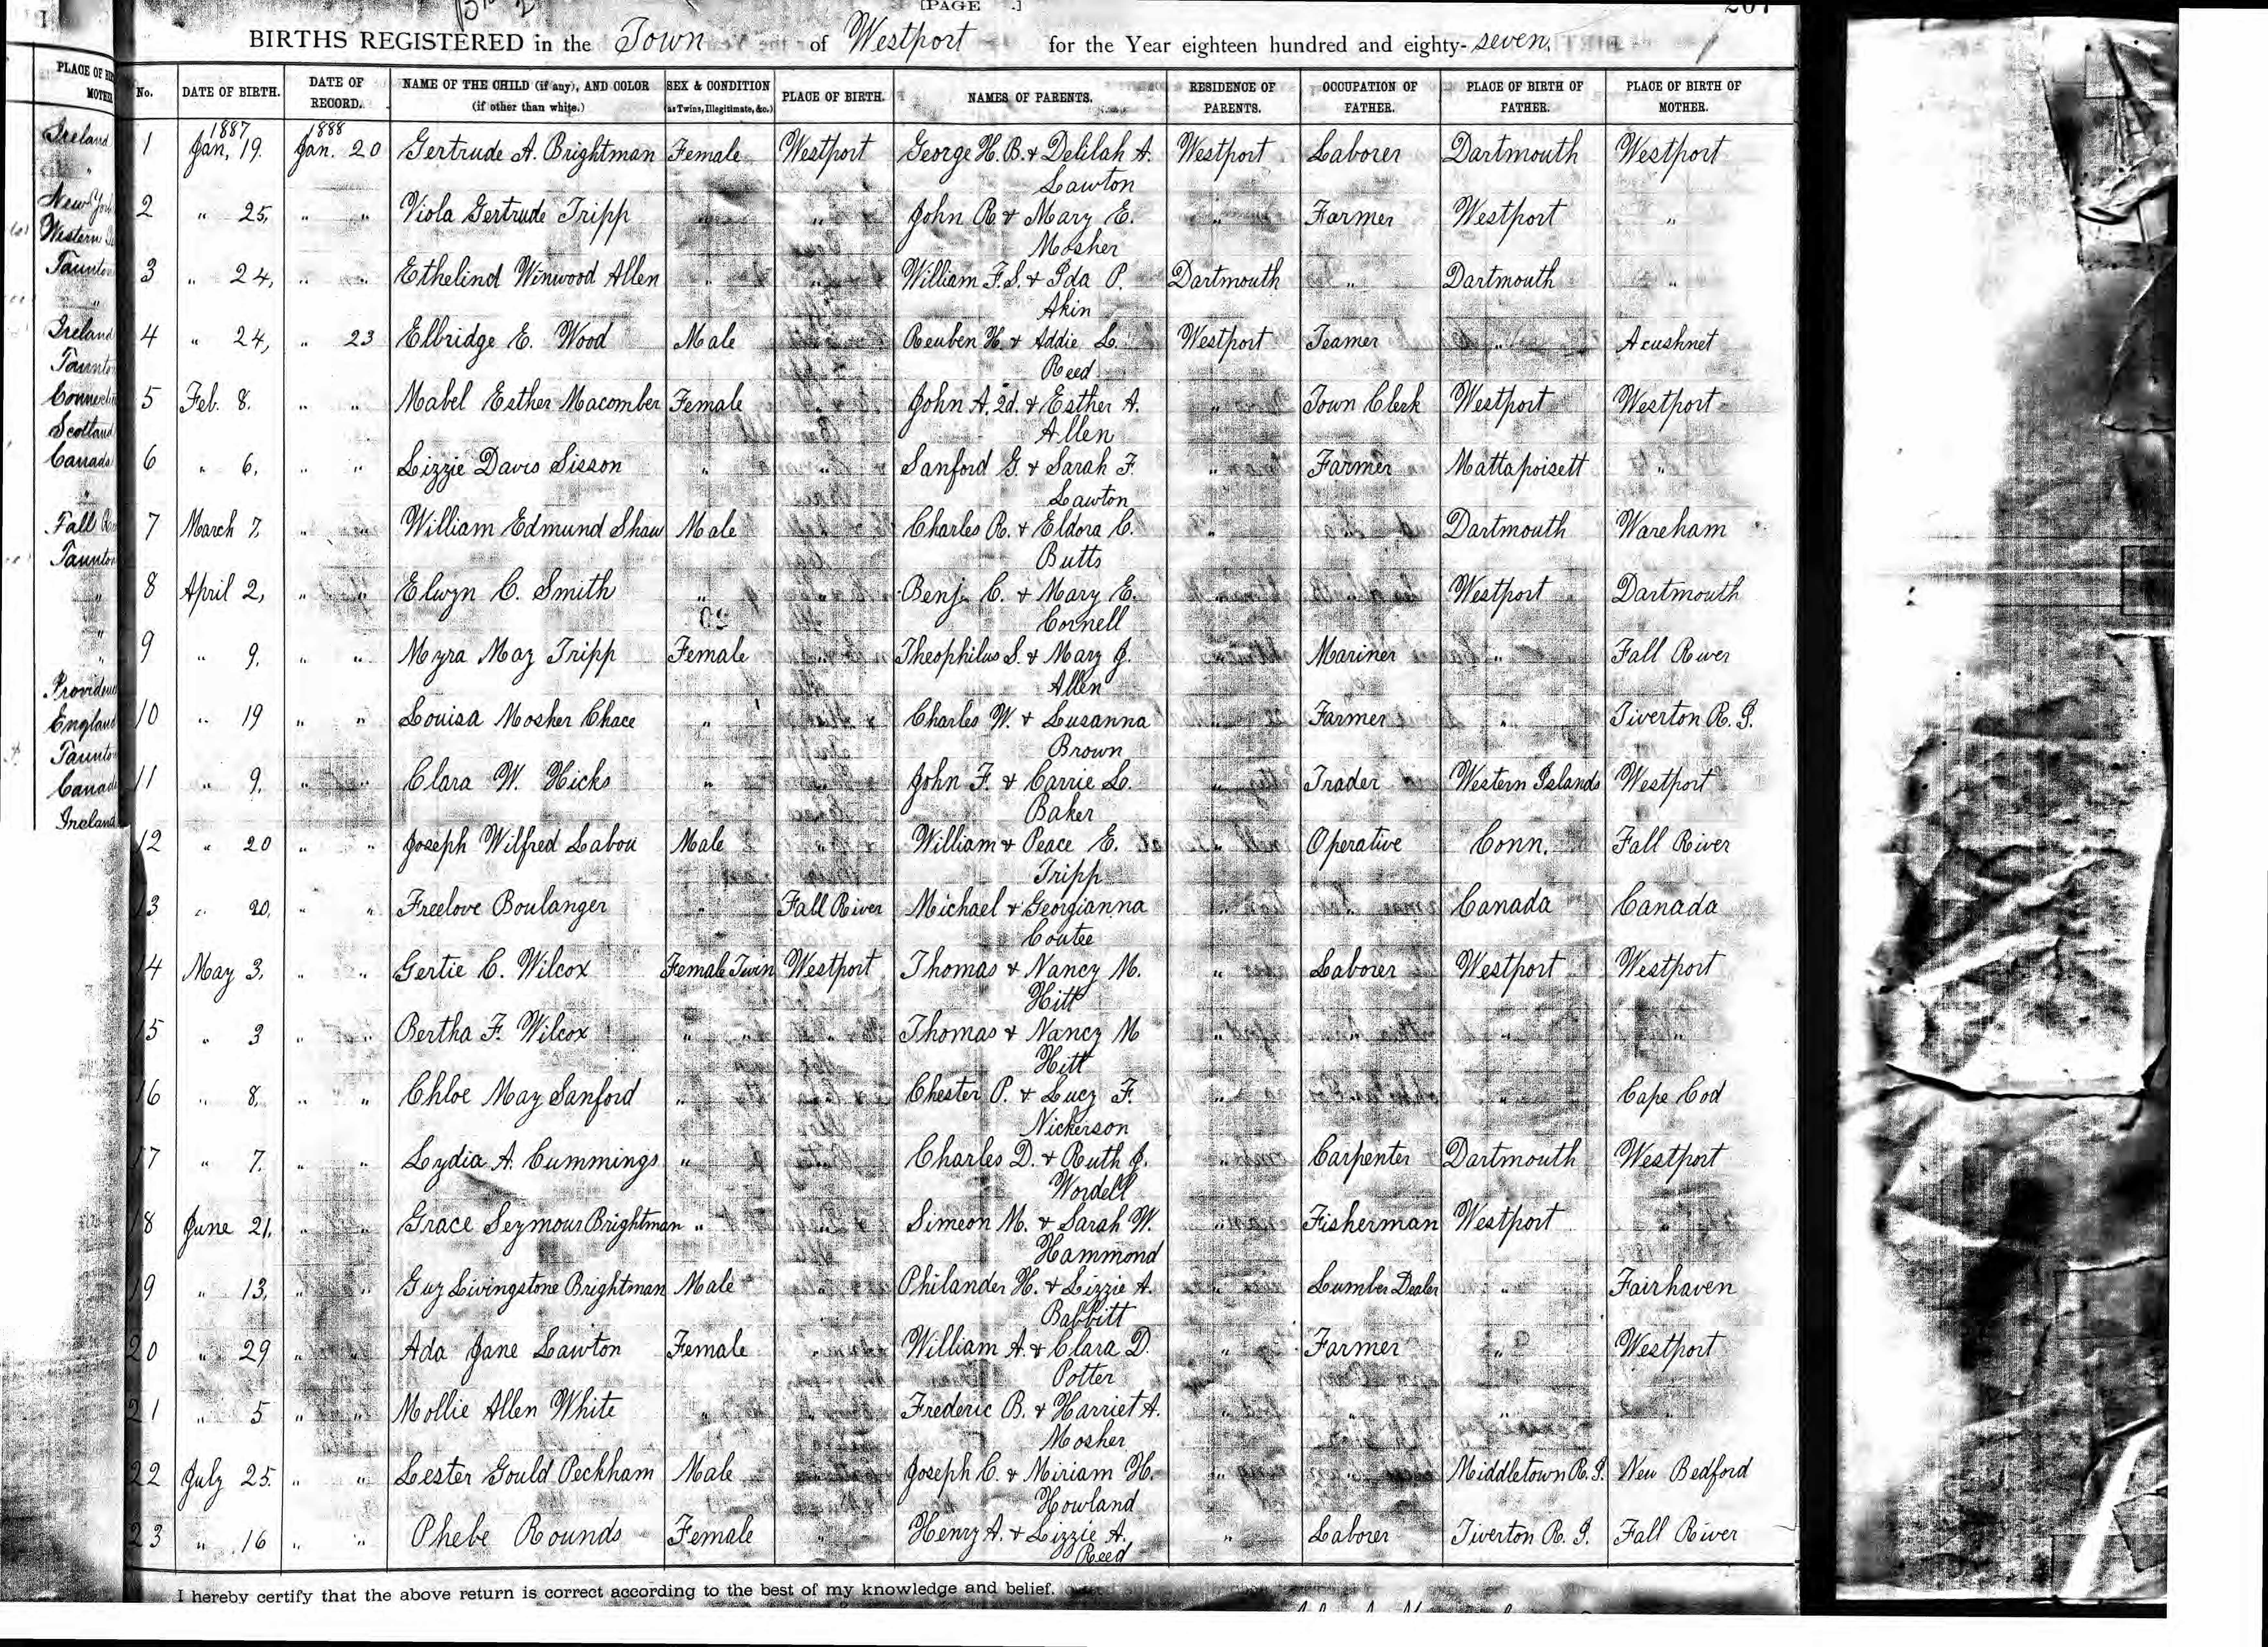 [PAGE .]
BIRTHS REGISTERED in the Town of Westport for the Year eighteen hundred and eighty-seven.
PLACE OF
MOTHER
No. DATE OF BIRTH. DATE OF RECORD. NAME OF THE CHILD (if any), AND COLOR (if other than white.) SEX & CONDITION (as Twins, Illegitimate, &c.) PLACE OF BIRTH. NAMES OF PARENTS. RESIDENCE OF PARENTS. OCCUPATION OF FATHER. PLACE OF BIRTH OF FATHER. PLACE OF BIRTH OF MOTHER.
1887 1888
1 Jan. 19. Jan. 20 Gertrude A. Brightman Female Westport George H. B. & Delilah A. Westport Laborer Dartmouth Westport
Lawton
2 " 25, " " Viola Gertrude Tripp " " John R & Mary E. " Farmer Westport "
Mosher
3 " 24, " " Ethelind Winwood Allen " " William F. S. & Ida P. Dartmouth " Dartmouth "
Akin
4 " 24, " 23 Elbridge E. Wood Male " Reuben H. & Addie L. Westport Teamer " Acushnet
Reed
5 Feb. 8. " " Mabel Esther Macomber Female " John A. 2d. & Esther A. " Town Clerk Westport Westport
Allen
6 " 6, " " Lizzie Davis Sisson " " Sanford G. & Sarah F. " Farmer Mattapoisett "
Lawton
7 March 7, " " William Edmund Shaw Male " Charles R. & Eldora C. " " Dartmouth Wareham
Butts
8 April 2, " " Elwyn C. Smith " " Benj. C. & Mary E. " " Westport Dartmouth
Cornell
9 " 9. " " Myra May Tripp Female " Theophilus S. & Mary J. " Mariner " Fall River
Allen
10 " 19 " " Louisa Mosher Chace " " Charles W. & Susanna " Farmer " Tiverton R. I.
Brown
11 " 9, " " Clara W. Hicks " " John F. & Carrie L. " Trader Western Islands Westport
Baker
12 " 20 " " Joseph Wilfred Labou Male " William & Peace E. " Operative Conn. Fall River
Tripp
13 " 20, " " Freelove Boulanger " Fall River Michael & Georgianna " " Canada Canada
Coutee
14 May 3, " " Gertie C. Wilcox Female Twin Westport Thomas & Nancy M. " Laborer Westport Westport
Hitt
15 " 3 " " Bertha F. Wilcox " " " Thomas & Nancy M " " " "
Hitt
16 " 8, " " Chloe May Sanford " " Chester P. & Lucy F. " " " Cape Cod
Nickerson
17 " 7. " " Lydia A. Cummings " " Charles D. & Ruth J. " Carpenter Dartmouth Westport
Wordell
18 June 21, " " Grace Seymour Brightman " " Simeon M. & Sarah W. " Fisherman Westport "
Hammond
19 " 13, " " Guy Livingstone Brightman Male " Philander H. & Lizzie A. " Lumber Dealer " Fairhaven
Babbitt
20 " 29 " " Ada Jane Lawton Female " William A. & Clara D. " Farmer " Westport
Potter
21 " 5 " " Mollie Allen White " " Frederic B. & Harriet A. " " " "
Mosher
22 July 25. " " Lester Gould Peckham Male " Joseph C. & Miriam H. " " Middletown R. I. New Bedford
Howland
23 " 16 " " Phebe Rounds Female " Henry A. & Lizzie A. " Laborer Tiverton R. I. Fall River
Reed
I hereby certify that the above return is correct according to the best of my knowledge and belief.
Ireland
"
New York
Western
Taunton
"
Ireland
Taunton
Scotland
Canada
"
Fall
Taunton
"
"
"
England
Taunton
Canada
Ireland